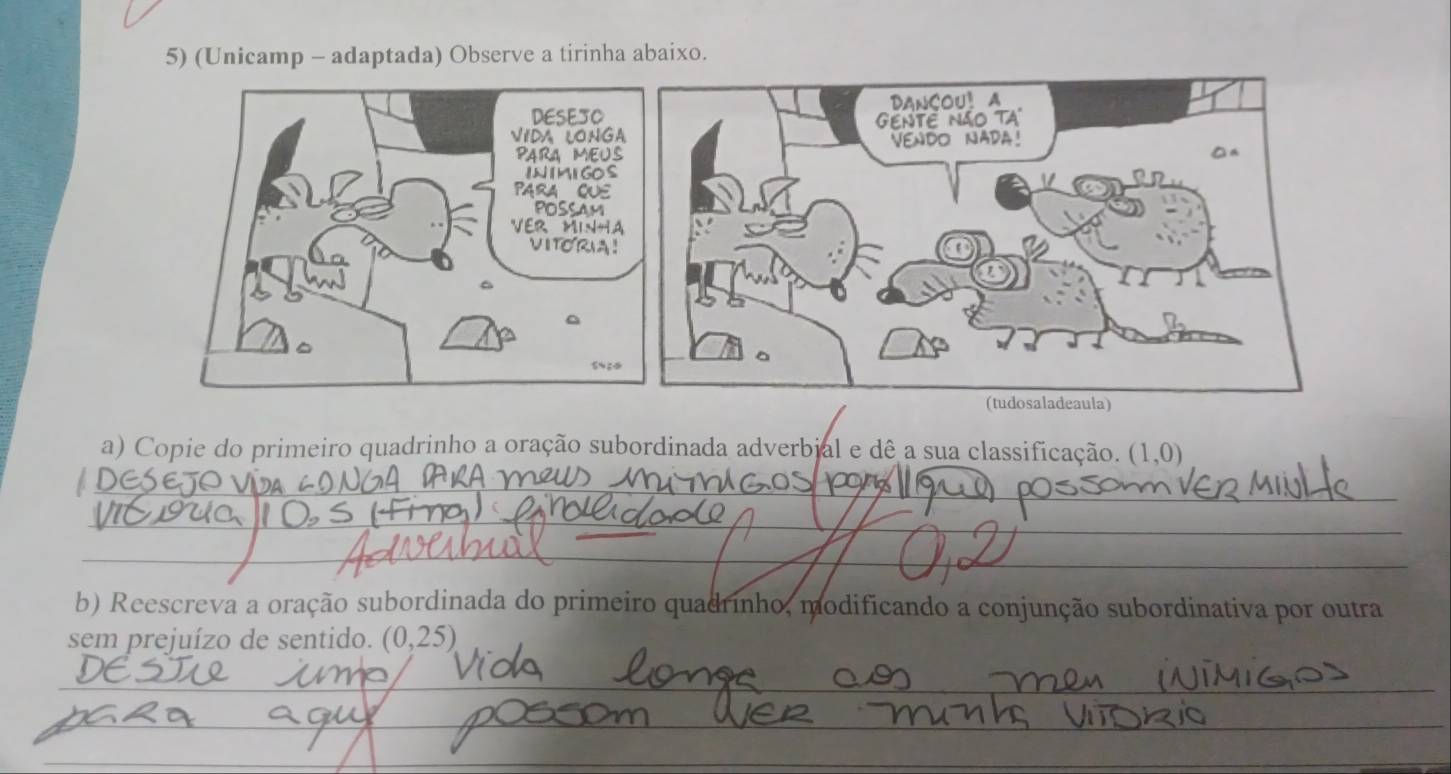 5) (Unicamp – adaptada) Observe a tirinha abaixo.
DESEJO
VIDA LONGA
PARA MEUS
INIMIGOS
PARA QUE
POSSAM
VER MINHA
VITÓRIA!
DANÇOU! A
GENTE NÃO TÁ
VENDO NADA!
(tudosaladeaula)
a) Copie do primeiro quadrinho a oração subordinada adverbial e dê a sua classificação. (1,0)
DESEJO VIDA LONGA PARA meus inimiGOS para que possam VER MINHa
vitoria O.S (Final) finalidade
Adverbial
0,2
b) Reescreva a oração subordinada do primeiro quadrinho, modificando a conjunção subordinativa por outra
sem prejuízo de sentido. (0,25)
uma vida longa aos meu iNiMiGOS
paRa possam VER minha ViTORia